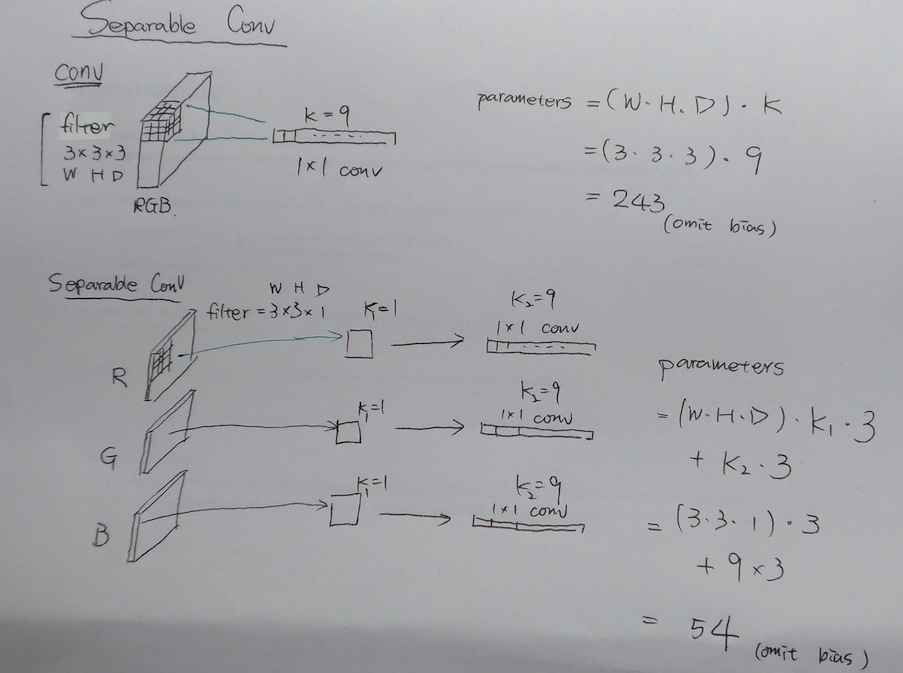 Separable Conv
Conv
filter
3×3×3
W H D
RGB.
K=9
1×1 conv
parameters = (W.H.D).K
=(3.3.3).9
= 243
(omit bias)
Separable Conv
W H D
filter =3×3×1
K=1
K₂=9
1×1 conv
R
K₁=1
K₂=9
1×1 conv
G
K₁=1
K₂=9
1×1 conv
B
parameters
=(W.H.D).K₁.3
+ K₂.3
= (3.3.1).3
+ 9×3
= 54
(omit bias)